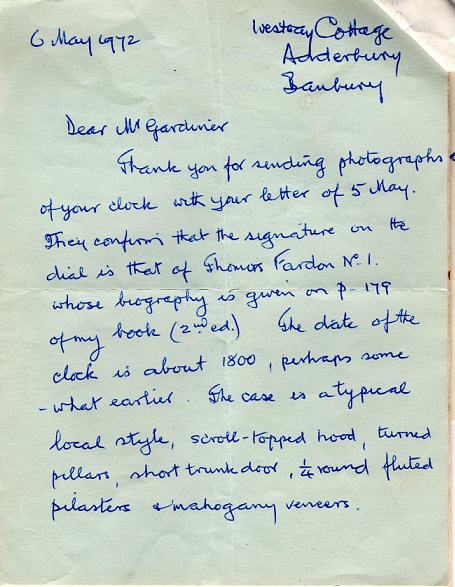 6 May 1972
Westray Cottage
Adderbury
Banbury
Dear Mr Gardiner
Thank you for sending photographs
of your clock with your letter of 5 May.
They confirm that the signature on the
dial is that of Thomas Fardon No. 1.
whose biography is given on p. 179
of my book (2nd ed.) The date of the
clock is about 1800, perhaps some
-what earlier. The case is a typical
local style, scroll-topped hood, turned
pillars, short trunk door, 1/4 round fluted
pilasters & mahogany veneers.